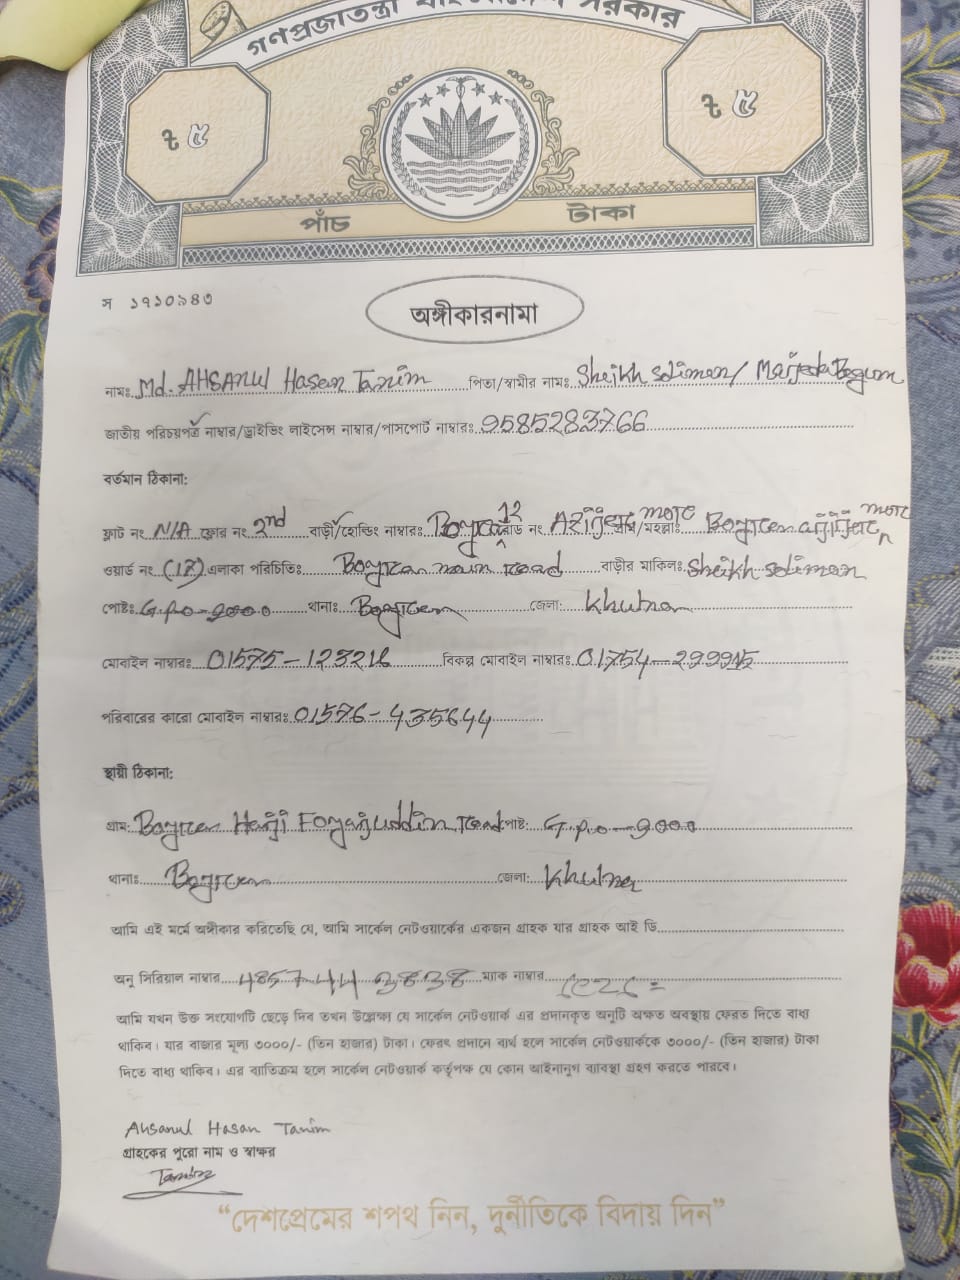 গণপ্রজাতন্ত্রী বাংলাদেশ সরকার
৳ ৫ ৳ ৫
পাঁচ টাকা
স ১৭১০৯৪৩
অঙ্গীকারনামা
নামঃ Md. AHSANUL Hasan Tanim পিতা/স্বামীর নামঃ Sheikh Soliman/ Marjeda Begum
জাতীয় পরিচয়পত্র নাম্বার/ড্রাইভিং লাইসেন্স নাম্বার/পাসপোর্ট নাম্বারঃ 9585283766
বর্তমান ঠিকানা:
ফ্লাট নং N/A ফ্লোর নং 2nd বাড়ী/হোল্ডিং নাম্বারঃ 12 রোড নং more গ্রাম/মহল্লাঃ Boyra more
ওয়ার্ড নং (17) এলাকা পরিচিতিঃ Boyra main road বাড়ীর মালিকঃ Sheikh Soliman
পোষ্টঃ G.p.o-9000 থানাঃ Boyra জেলা: Khulna
মোবাইল নাম্বারঃ 01575-123216 বিকল্প মোবাইল নাম্বারঃ 01754-299915
পরিবারের কারো মোবাইল নাম্বারঃ 01576-435644
স্থায়ী ঠিকানা:
গ্রাম: Boyra Hazji Foyajuddin road পোষ্ট: G.p.o-9000
থানাঃ Boyra জেলা: Khulna
আমি এই মর্মে অঙ্গীকার করিতেছি যে, আমি সার্কেল নেটওয়ার্কের একজন গ্রাহক যার গ্রাহক আই ডি
অনু সিরিয়াল নাম্বার 48574443838 ম্যাক নাম্বার
আমি যখন উক্ত সংযোগটি ছেড়ে দিব তখন উল্লেক্ষ্য যে সার্কেল নেটওয়ার্ক এর প্রদানকৃত অনুটি অক্ষত অবস্থায় ফেরত দিতে বাধ্য
থাকিব। যার বাজার মূল্য ৩০০০/- (তিন হাজার) টাকা। ফেরৎ প্রদানে ব্যর্থ হলে সার্কেল নেটওয়ার্ককে ৩০০০/- (তিন হাজার) টাকা
দিতে বাধ্য থাকিব। এর ব্যতিক্রম হলে সার্কেল নেটওয়ার্ক কর্তৃপক্ষ যে কোন আইনানুগ ব্যাবস্থা গ্রহণ করতে পারবে।
Ahsanul Hasan Tanim
গ্রাহকের পুরো নাম ও স্বাক্ষর
“দেশপ্রেমের শপথ নিন, দুর্নীতিকে বিদায় দিন”